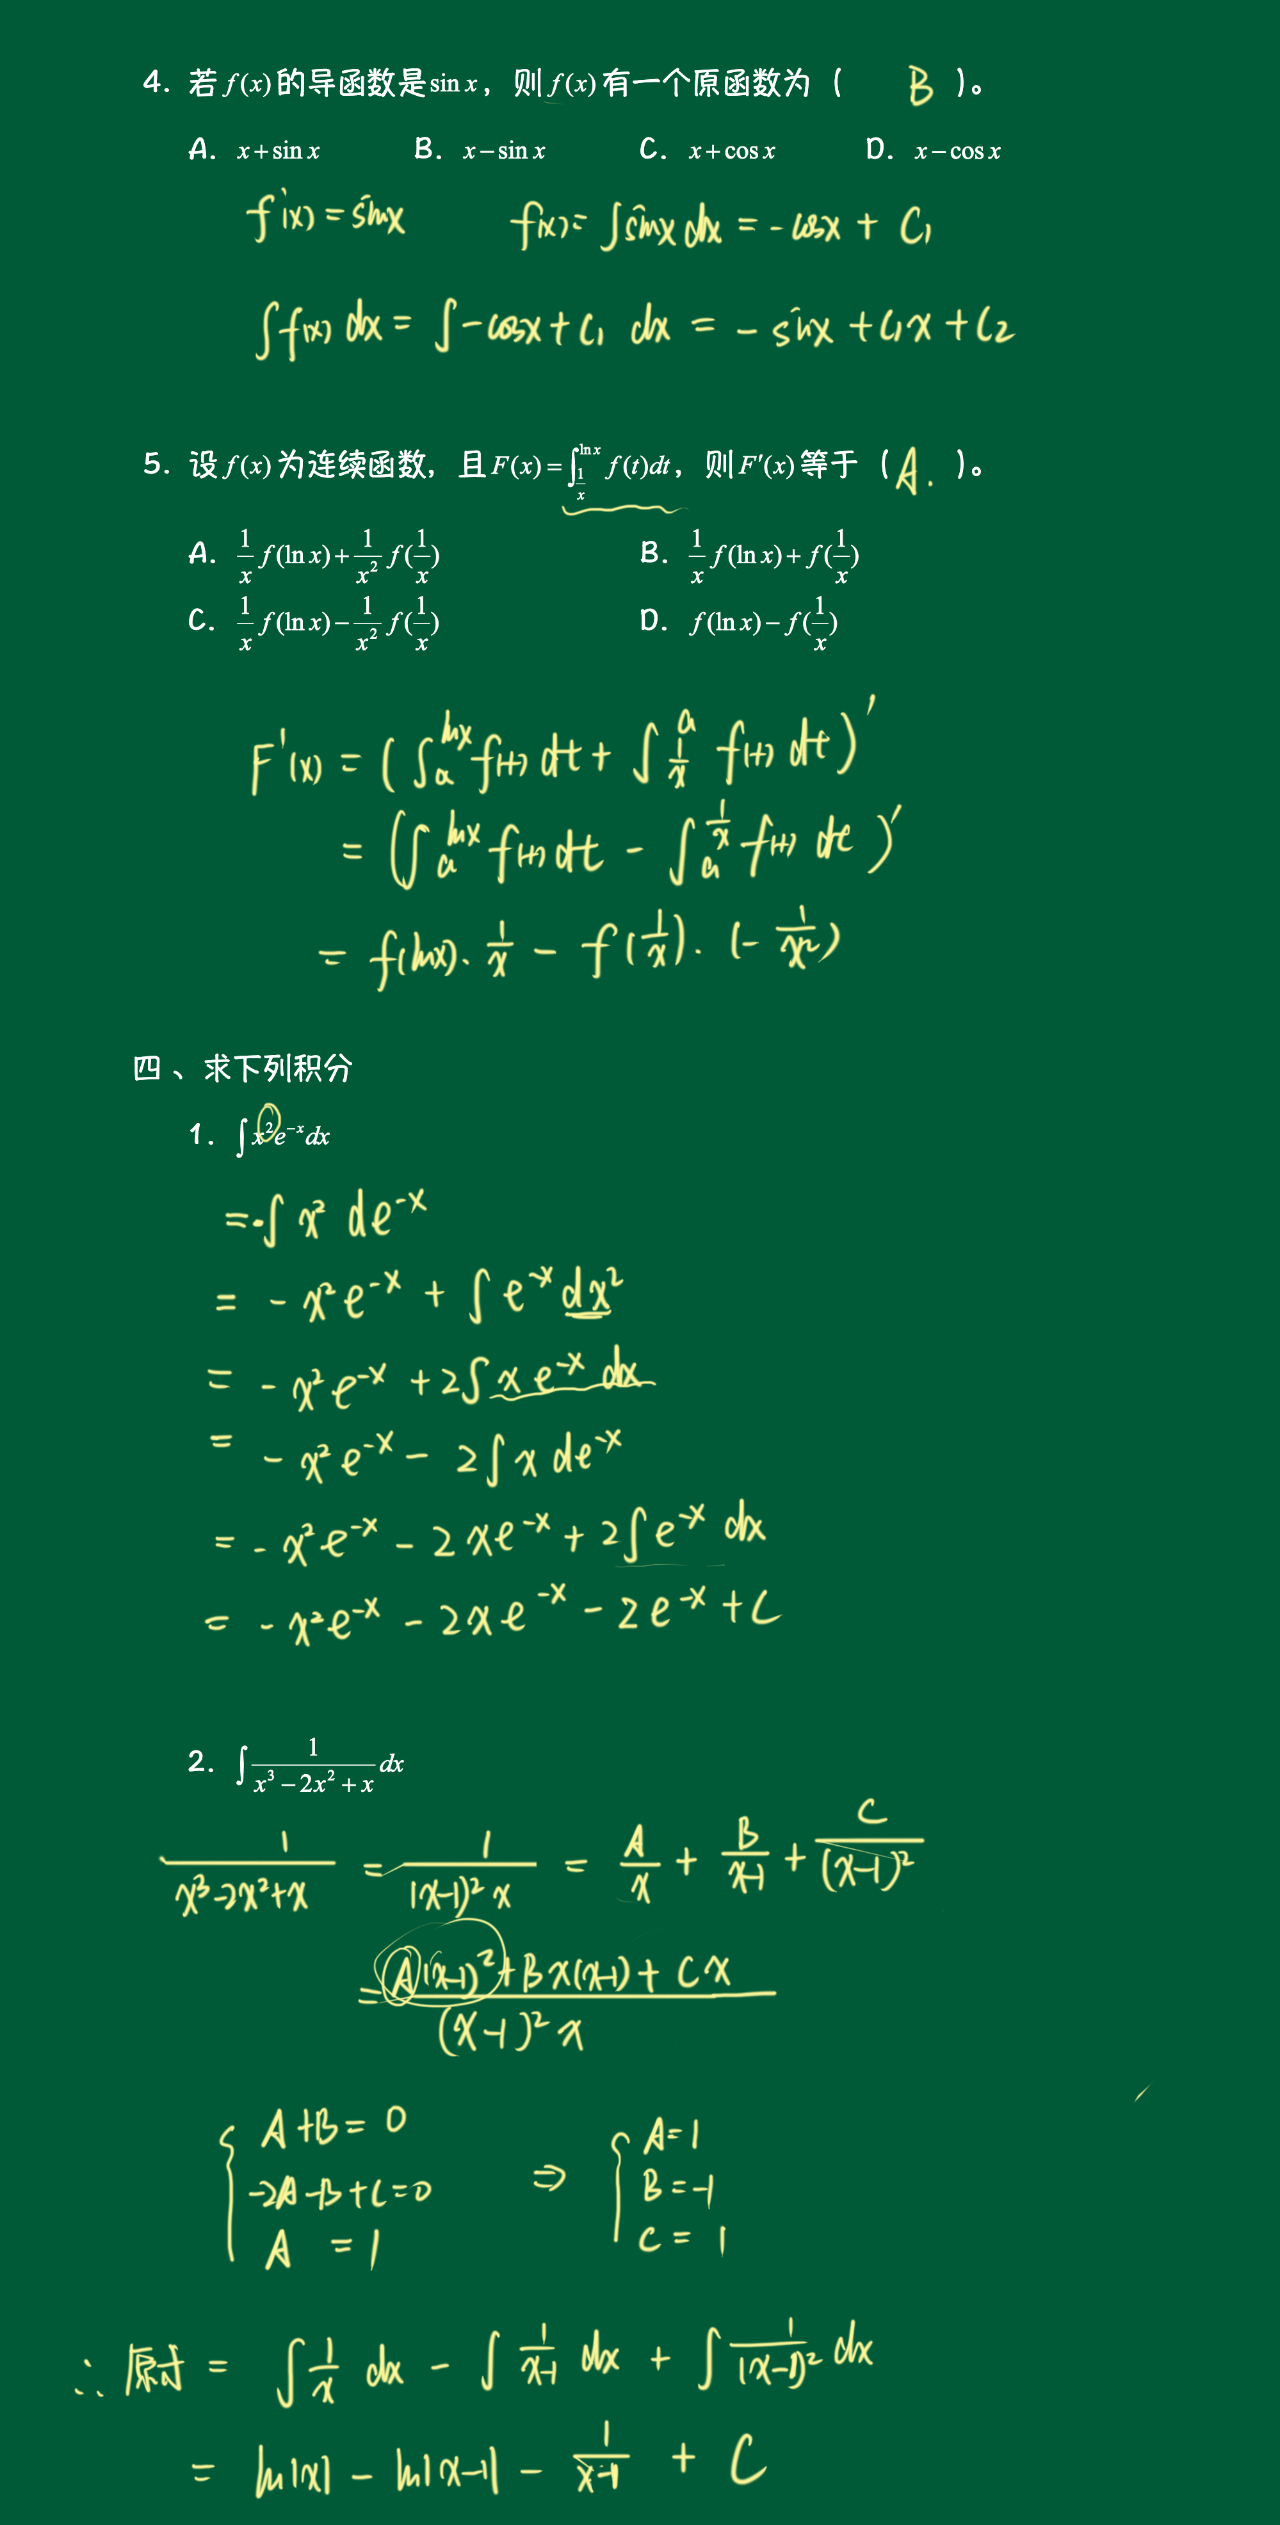 4. 若 f(x) 的导函数是 sin x，则 f(x) 有一个原函数为（ B ）。
A. x+sin x B. x−sin x C. x+cos x D. x−cos x
f'(x) = sinx f(x) = ∫sinx dx = -cosx + C₁
∫f(x) dx = ∫-cosx+C₁ dx = -sinx + C₁x + C₂
5. 设 f(x) 为连续函数，且 F(x) = ∫_{1/x}^{ln x} f(t)dt，则 F′(x) 等于（ A. ）。
A. 1/x f(ln x)+1/x² f(1/x) B. 1/x f(ln x)+f(1/x)
C. 1/x f(ln x)−1/x² f(1/x) D. f(ln x)−f(1/x)
F'(x) = (∫_a^{lnx} f(t) dt + ∫_{1/x}^a f(t) dt)'
= (∫_a^{lnx} f(t) dt - ∫_a^{1/x} f(t) dt)'
= f(lnx)· 1/x - f(1/x)·(-1/x²)
四、求下列积分
1. ∫x²e^{−x}dx
= -∫x² de^{-x}
= -x²e^{-x} + ∫e^{-x} dx²
= -x²e^{-x} + 2∫x e^{-x} dx
= -x²e^{-x} - 2∫x de^{-x}
= -x²e^{-x} - 2xe^{-x} + 2∫e^{-x} dx
= -x²e^{-x} - 2xe^{-x} - 2e^{-x} + C
2. ∫ 1/(x³−2x²+x) dx
1/(x³-2x²+x) = 1/((x-1)²x) = A/x + B/(x-1) + C/(x-1)²
= (A(x-1)²+Bx(x-1)+Cx)/((x-1)²x)
A+B=0 A=1
-2A-B+C=0 ⇒ B=-1
A =1 C=1
∴ 原式 = ∫1/x dx - ∫1/(x-1) dx + ∫1/(x-1)² dx
= ln|x| - ln|x-1| - 1/(x-1) + C